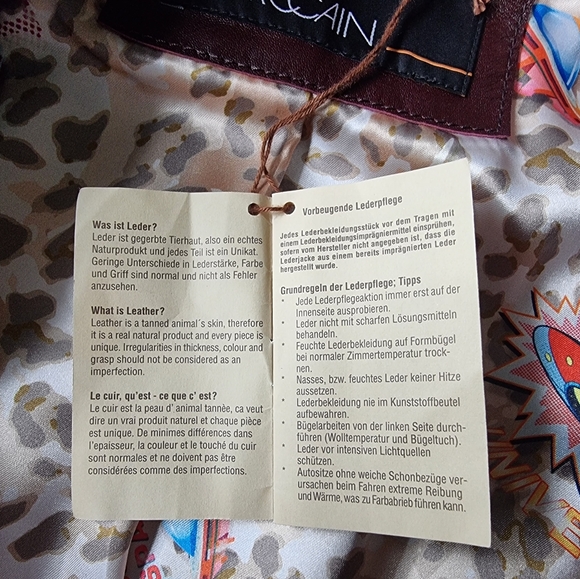 CCAIN
Was ist Leder?
Leder ist gegerbte Tierhaut, also ein echtes
Naturprodukt und jedes Teil ist ein Unikat.
Geringe Unterschiede in Lederstärke, Farbe
und Griff sind normal und nicht als Fehler
anzusehen.
What is Leather?
Leather is a tanned animal´s skin, therefore
it is a real natural product and every piece is
unique. Irregularities in thickness, colour and
grasp should not be considered as an
imperfection.
Le cuir, qu'est - ce que c' est?
Le cuir est la peau d' animal tannèe, ca veut
dire un vrai produit naturel et chaque pièce
est unique. De minimes différences dans
l'epaisseur, la couleur et le touché du cuir
sont normales et ne doivent pas être
considérées comme des imperfections.
Vorbeugende Lederpflege
Jedes Lederbekleidungsstück vor dem Tragen mit
einem Lederbekleidungsimprägniermittel einsprühen,
sofern vom Hersteller nicht angegeben ist, dass die
Lederjacke aus einem bereits imprägnierten Leder
hergestellt wurde.
Grundregeln der Lederpflege; Tipps
* Jede Lederpflegeaktion immer erst auf der
Innenseite ausprobieren.
* Leder nicht mit scharfen Lösungsmitteln
behandeln.
* Feuchte Lederbekleidung auf Formbügel
bei normaler Zimmertemperatur trock-
nen.
* Nasses, bzw. feuchtes Leder keiner Hitze
aussetzen.
* Lederbekleidung nie im Kunststoffbeutel
aufbewahren.
* Bügelarbeiten von der linken Seite durch-
führen (Wolltemperatur und Bügeltuch).
* Leder vor intensiven Lichtquellen
schützen.
* Autositze ohne weiche Schonbezüge ver-
ursachen beim Fahren extreme Reibung
und Wärme, was zu Farbabrieb führen kann.